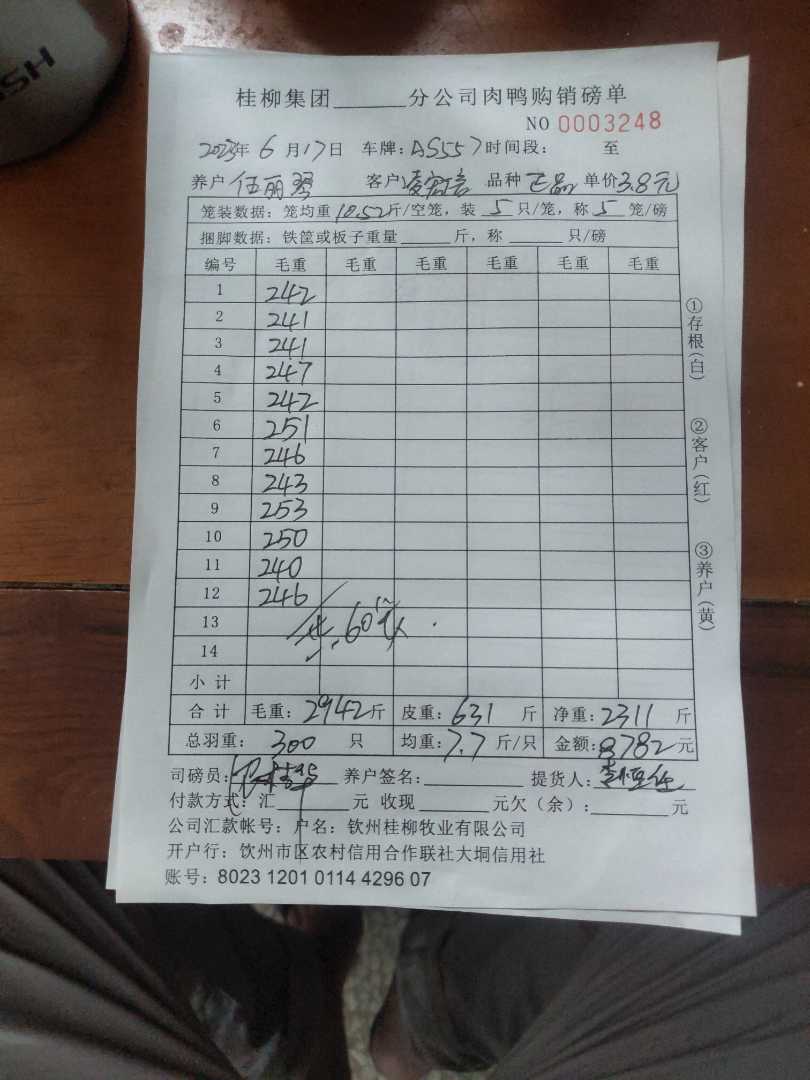 HSH
桂柳集团______分公司肉鸭购销磅单
NO 0003248
2023年 6 月 17 日 车牌: A5557 时间段: 至
养户 伍丽琴 客户 凌宏信 品种 正品 单价 3.8元
笼装数据: 笼均重 10.52 斤/空笼, 装 5 只/笼, 称 5 笼/磅
捆脚数据: 铁筐或板子重量______斤, 称______只/磅
编号 毛重 毛重 毛重 毛重 毛重 毛重
1 242
2 241
3 241
4 247
5 242
6 251
7 246
8 243
9 253
10 250
11 240
12 246
13 共60笼
14
小 计
合 计 毛重: 2942 斤 皮重: 631 斤 净重: 2311 斤
总羽重: 300 只 均重: 7.7 斤/只 金额: 8782 元
司磅员: 养户签名:________ 提货人:
付款方式: 汇______元 收现______元欠（余）:______元
公司汇款帐号: 户名: 钦州桂柳牧业有限公司
开户行: 饮州市区农村信用合作联社大垌信用社
账号: 8023 1201 0114 4296 07
①存根(白)
②客户(红)
③养户(黄)